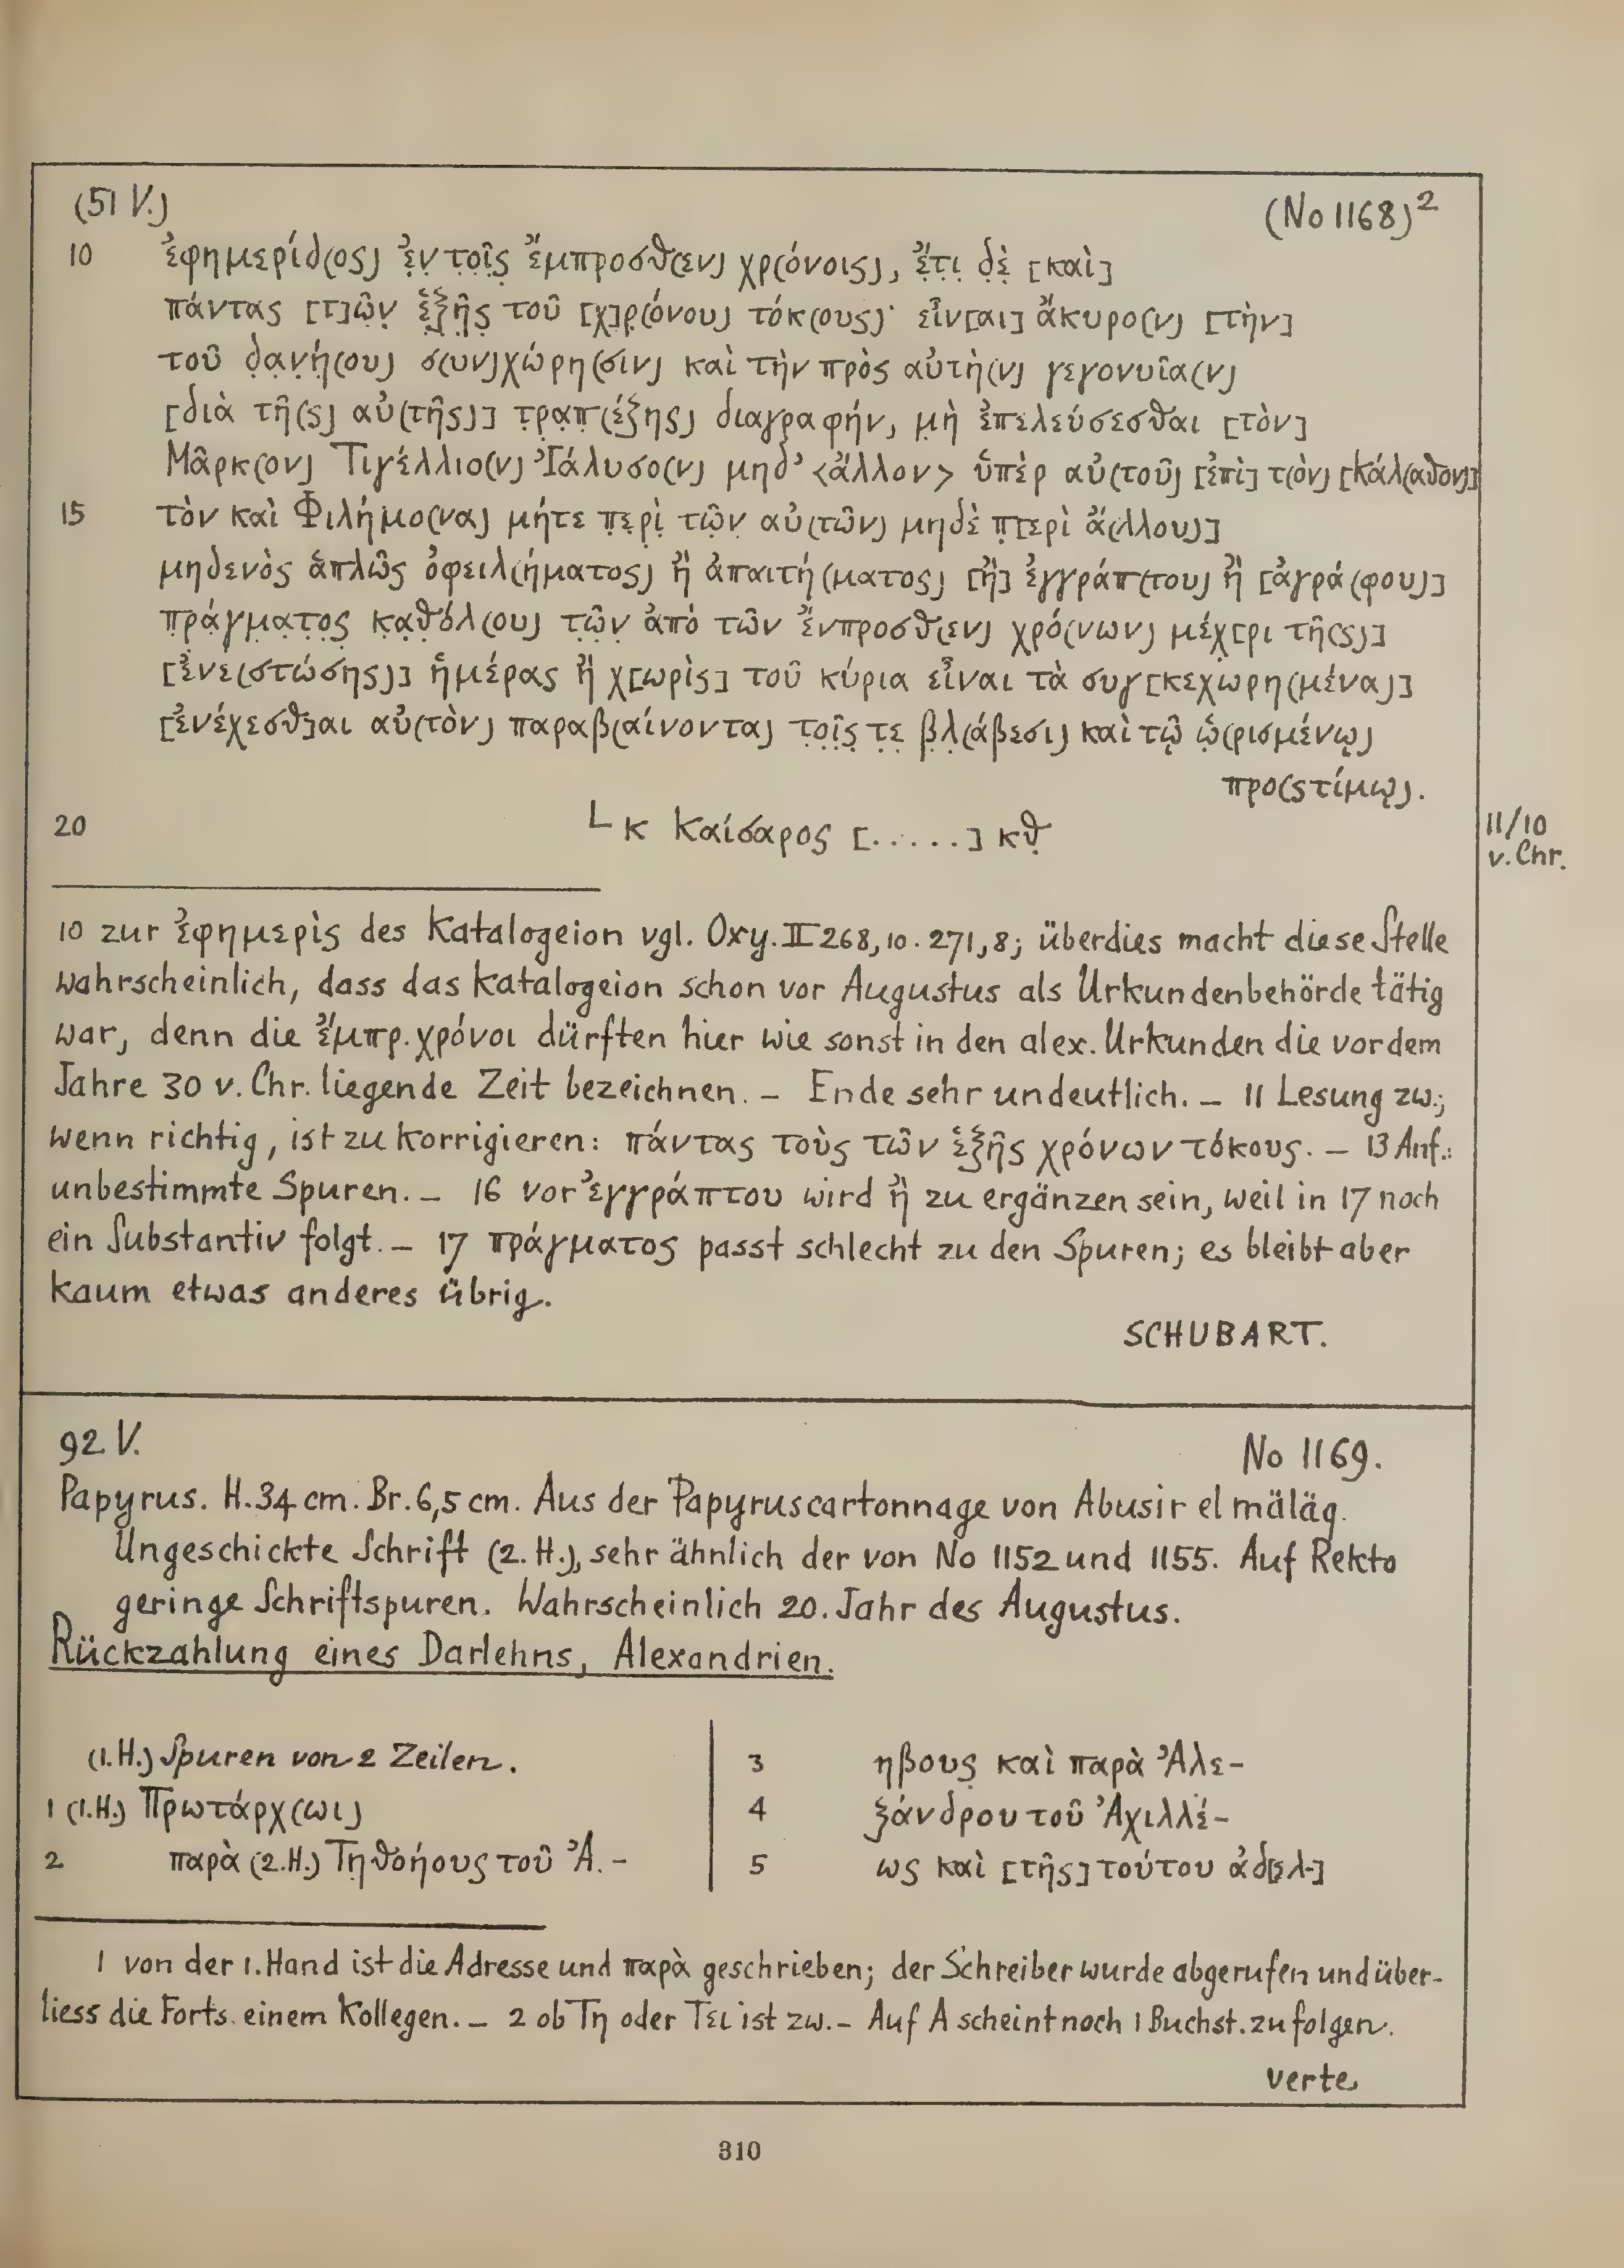 (51 V.)
(No 1168)²
10 ἐφημερίδ(ος) ἐ̣ν̣ τ̣ο̣ῖ̣ς̣ ἔμπροσθ(εν) χρ(όνοις), ἔ̣τ̣ι̣ δ̣ὲ̣ [καὶ]
πάντας [τ]ῶ̣ν̣ ἑ̣ξ̣ῆ̣ς̣ τοῦ [χ]ρ̣(όνου) τόκ(ους)· εἶν[αι] ἄκυρο(ν) [τὴν]
τοῦ δ̣α̣ν̣ή̣(ου) σ(υν)χώρη(σιν) καὶ τὴν πρὸς αὐτὴ(ν) γεγονυῖα(ν)
[διὰ τῆ(ς) αὐ(τῆς)] τ̣ρ̣α̣π̣(έζης) διαγραφήν, μ̣ὴ ἐπελεύσεσθαι [τὸν]
Μᾶρκ(ον) Τιγέλλιο(ν) Ἰάλυσο(ν) μηδ’ <ἄλλον> ὑπὲρ αὐ(τοῦ) [ἐπὶ] τ(ὸν) [Κάλ(αθον)]
15 τὸν καὶ Φιλήμο(να) μήτε π̣ε̣ρ̣ὶ̣ τ̣ῶ̣ν̣ αὐ(τῶν) μηδὲ π̣[ερὶ ἄ(λλου)]
μηδενὸς ἁπλῶς ὀφειλ(ήματος) ἢ ἀπαιτή(ματος) [ἢ] ἐγγράπ(του) ἢ [ἀγρά(φου)]
π̣ρ̣ά̣γ̣μ̣α̣τ̣ο̣ς̣ κ̣α̣θ̣όλ(ου) τ̣ῶ̣ν̣ ἀπὸ τῶν ἔνπροσθ(εν) χρό(νων) μέχ̣[ρι τῆ(ς)]
[ἐνε(στώσης)] ἡμέρας ἢ χ[ωρὶς] τοῦ κύρια εἶναι τὰ συγ[κεχωρη(μένα)]
[ἐνέχεσθ]αι αὐ(τὸν) παραβ(αίνοντα) τ̣ο̣ῖ̣ς̣ τ̣ε̣ β̣λ̣(άβεσι) καὶ τῷ ὡ̣(ρισμένῳ)
προ(ςτίμῳ).
20 L κ Καίσαρος [.....] κθ̣
11/10
v. Chr.
10 zur ἐφημερὶς des Katalogeion vgl. Oxy. II 268, 10. 271, 8; überdies macht diese Stelle
wahrscheinlich, dass das Katalogeion schon vor Augustus als Urkundenbehörde tätig
war, denn die ἔμπρ. χρόνοι dürften hier wie sonst in den alex. Urkunden die vor dem
Jahre 30 v. Chr. liegende Zeit bezeichnen. – Ende sehr undeutlich. – 11 Lesung zw.;
wenn richtig, ist zu korrigieren: πάντας τοὺς τῶν ἑξῆς χρόνων τόκους. – 13 Anf.:
unbestimmte Spuren. – 16 vor ἐγγράπτου wird ἢ zu ergänzen sein, weil in 17 noch
ein Substantiv folgt. – 17 πράγματος passt schlecht zu den Spuren; es bleibt aber
kaum etwas anderes übrig.
SCHUBART.
92 V.
No 1169.
Papyrus. H. 34 cm. Br. 6,5 cm. Aus der Papyruscartonnage von Abusir el mäläg.
Ungeschickte Schrift (2. H.), sehr ähnlich der von No 1152 und 1155. Auf Rekto
geringe Schriftspuren. Wahrscheinlich 20. Jahr des Augustus.
Rückzahlung eines Darlehns, Alexandrien.
(1. H.) Spuren von 2 Zeilen.
1 (1. H.) Πρωτάρχ(ωι)
2 παρὰ (2. H.) Τη̣θοήους τοῦ Ἀ. –
3 ηβους καὶ παρὰ Ἀλε-
4 ξάνδρου τοῦ Ἀχιλλέ-
5 ως καὶ [τῆς] τούτου ἀδ[ελ-]
1 von der 1. Hand ist die Adresse und παρὰ geschrieben; der Schreiber wurde abgerufen und über-
liess die Forts. einem Kollegen. – 2 ob Τη oder Τει ist zw. – Auf Α scheint noch 1 Buchst. zu folgen.
verte
310